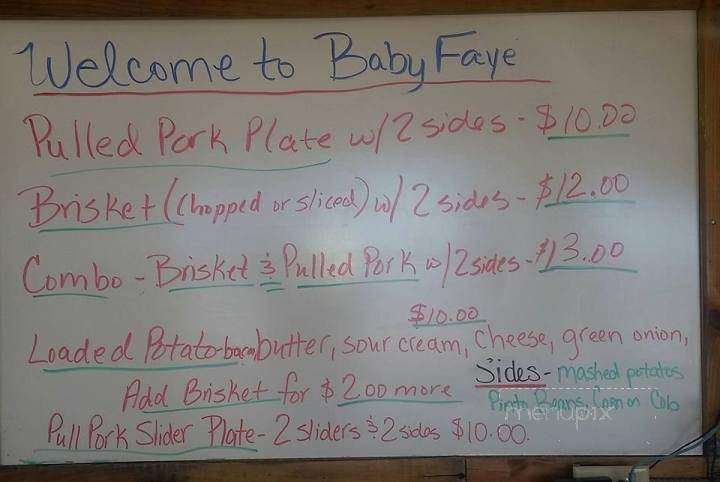 Welcome to Baby Faye
Pulled Pork Plate w/ 2 sides - $10.00
Brisket (Chopped or sliced) w/ 2 sides - $12.00
Combo - Brisket & Pulled Pork w/ 2 sides - $13.00
$10.00
Loaded Potato - bacon, butter, sour cream, cheese, green onion,
Sides - mashed potatos
Add Brisket for $2.00 more
Pinto Beans, Corn on Cob
menupix
Pull Pork Slider Plate - 2 sliders & 2 sides $10.00.